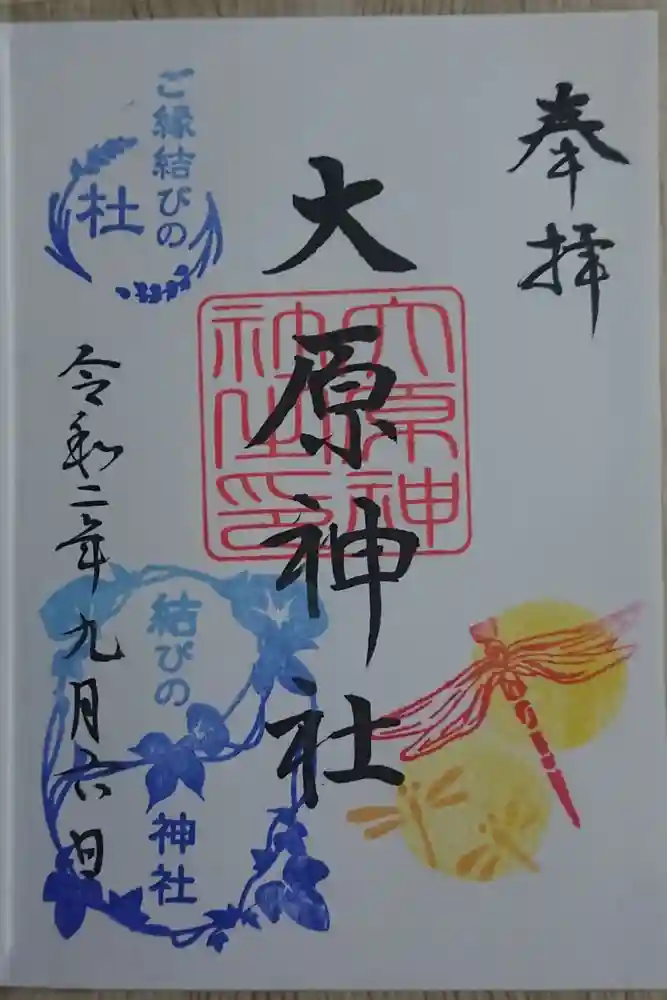 奉拝
大原神社
大原神社之印
ご縁結びの
杜
令和二年九月六日
結びの
神社